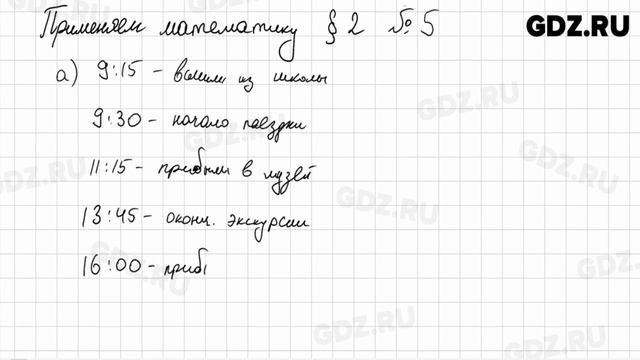 Применяем математику § 2 № 5
GDZ.RU
а) 9:15 – вышли из школы
9:30 – начало поездки
11:15 – прибыли в музей
13:45 – оконч. экскурсии
16:00 – приб
GDZ.RU
GDZ.RU
GDZ.RU
GDZ.RU
GDZ.RU
GDZ.RU
GDZ.RU